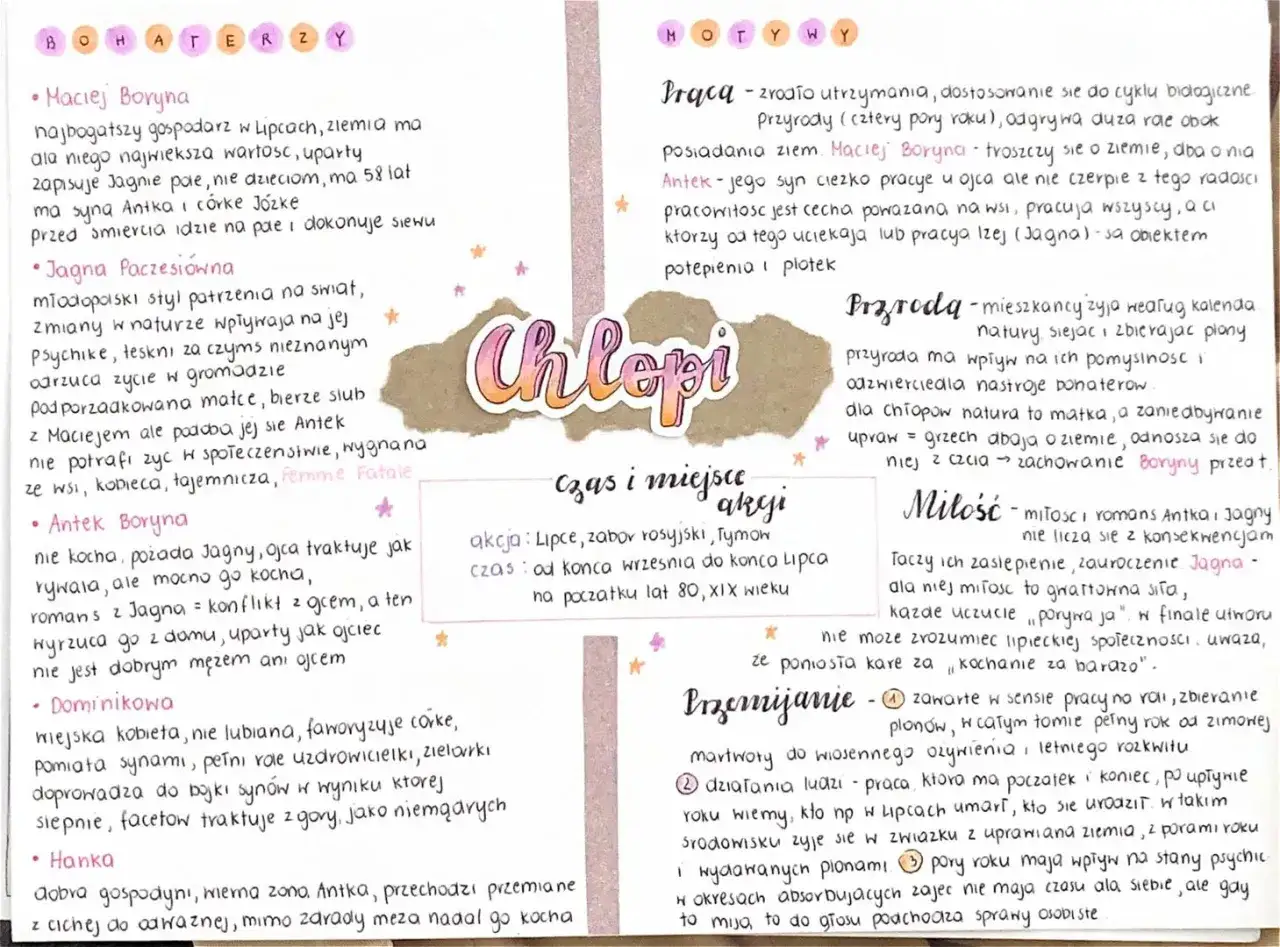 BOHATERZY
• Maciej Boryna
najbogatszy gospodarz w Lipcach, ziemia ma
dla niego największa wartosc, uparty
zapisuje Jagnie pole, nie dzieciom, ma 58 lat
ma syna Antka i córke Józke
przed smiercia idzie na pole i dokonuje siewu
• Jagna Paczesiówna
młodopolski styl patrzenia na swiat,
zmiany w naturze wpływaja na jej
psychike, teskni za czyms nieznanym
odrzuca zycie w gromadzie
podporzadkowana matce, bierze slub
z Maciejem ale podoba jej sie Antek
nie potrafi zyc w społeczenstwie, wygnana
ze wsi, kobieca, tajemnicza, femme fatale
• Antek Boryna
nie kocha, pożada Jagny, ojca traktuje jak
rywala, ale mocno go kocha,
romans z Jagna = konflikt z ojcem, a ten
wyrzuca go z domu, uparty jak ojciec
nie jest dobrym mężem ani ojcem
• Dominikowa
wiejska kobieta, nie lubiana, faworyzuje córke,
pomiata synami, pełni role uzdrowicielki, zielarki
doprowadza do bojki synów w wyniku ktorej
slepnie, facetow traktuje z gory, jako niemądrych
• Hanka
dobra gospodyni, wierna zona Antka, przechodzi przemiane
z cichej do odwaznej, mimo zdrady meza nadal go kocha
Chłopi
czas i miejsce
akcji
akcja: Lipce, zabor rosyjski, Tymow
czas: od konca wrzesnia do konca Lipca
na poczatku lat 80, XIX wieku
MOTYWY
Praca - zrodło utrzymania, dostosowanie sie do cyklu biologiczne
Przyrody (cztery pory roku), odgrywa duza role obok
posiadania ziem. Maciej Boryna - troszczy sie o ziemie, dba o nia
Antek - jego syn ciezko pracuje u ojca ale nie czerpie z tego radosci
pracowitosc jest cecha powazana na wsi, pracuja wszyscy, a ci
ktorzy od tego uciekaja lub pracya lzej (Jagna) - sa obiektem
potepienia i plotek
Przyroda - mieszkancy zyja według kalenda
natury, siejac i zbierajac plony
przyroda ma wpływ na ich pomyslnosc i
odzwierciedla nastroje bohaterow
dla chłopow natura to matka, a zaniedbywanie
upraw = grzech dbaja o ziemie, odnosza sie do
niej z czcia → zachowanie Boryny przed ł.
Miłość - miłosc i romans Antka i Jagny
nie licza się z konsekwencjam
łaczy ich zaslepienie, zauroczenie Jagna -
dla niej miłosc to gwałtowna siła,
kazde uczucie „porywa ja”. w finale utworu
nie moze zrozumiec lipieckiej społecznosci. uwaza,
że poniosła kare za „kochanie za bardzo”.
Przemijanie - 1 zawarte w sensie pracy na roli, zbieranie
plonów, w całym tomie pełny rok od zimowej
martwoty do wiosennego ozywienia i letniego rozkwitu
2 działania ludzi - praca, ktora ma poczatek i koniec, po upływie
roku wiemy, kto np w Lipcach umarł, kto sie urodził. w takim
środowisku zyje się w zwiazku z uprawiana ziemia, z porami roku
i wydawanych plonami. 3 pory roku maja wpływ na stany psychic
w okresach absorbujących zajec nie maja czasu dla siebie, ale gdy
to mija, to do głosu podchodza sprawy osobiste